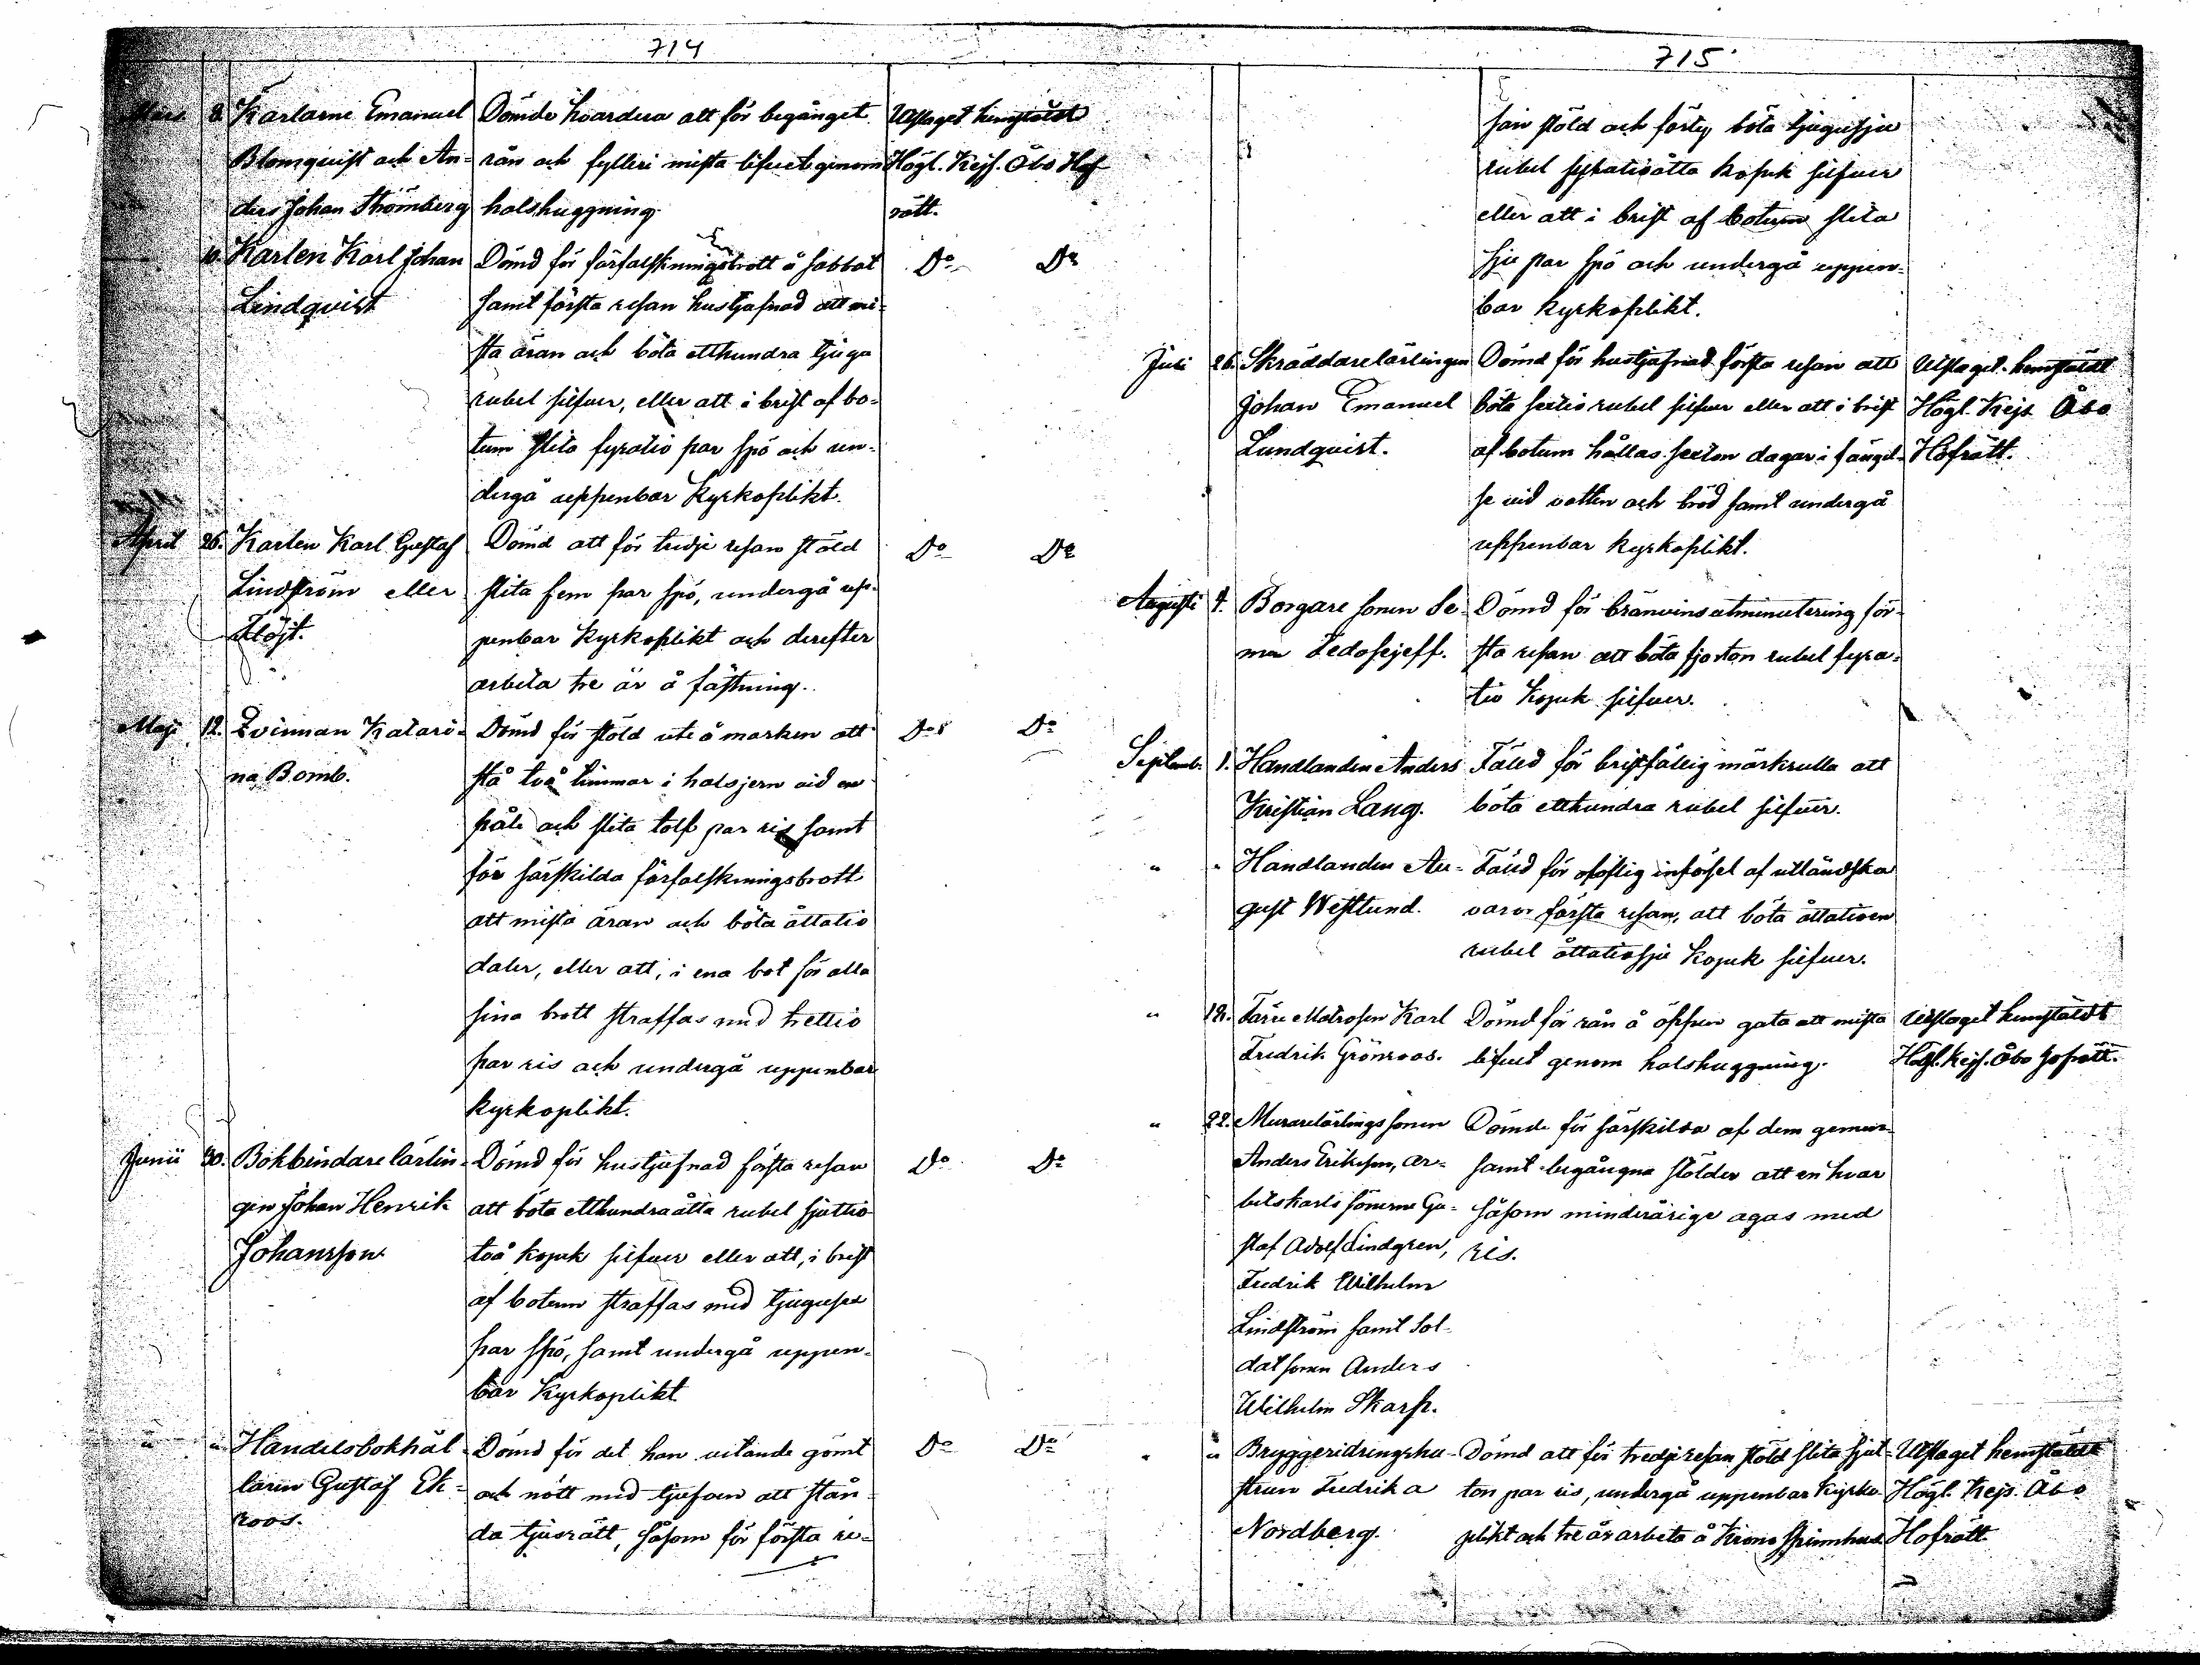 714
Mars 8. Karlarne Emanuel
Blomquist och An-
ders Johan Thömberg
Dömde hvardera att för begånget
rån och fylleri mista lifvet genom
halshuggning.
Utslaget hemstäldt
Högl. Kejs. Åbo Hof
rätt.
10. Karlen Karl Johan
Lindqvist
Dömd för förfalskningsbrott å sabbat
samt första resan hustjufnad att mi-
sta äran och böta etthundra tjugo
rubel silfver, eller att i brist af bo-
tum slita fyratio par spö och un-
dergå uppenbar kyrkoplikt.
Do Do
April 26. Karlen Karl Gustaf
Lindström eller
Flöjt.
Dömd att för tredje resan stöld
slita fem par spö, undergå up-
penbar kyrkoplikt och derefter
arbeta tre år å fästning.
Do Do
Maji 12. Qvinnan Katari-
na Bomb.
Dömd för stöld ute å marken att
stå två timmar i halsjern vid en
påle och slita tolf par ris samt
för särskilda förfalskningsbrott
att mista äran och böta åttatio
daler, eller att, i ena bot för alla
sina brott straffas med trettio
par ris och undergå uppenbar
kyrkoplikt.
Do Do
Junii 30. Bokbindarelärlin-
gen Johan Henrik
Johansson
Dömd för hustjufnad första resan
att böta etthundraåtta rubel sjuttio
två kopek silfver eller att, i brist
af botum straffas med tjugusex
par spö, samt undergå uppen-
bar kyrkoplikt.
Do Do
" " Handelsbokhål-
laren Gustaf Ek-
roos.
Dömd för det han vetande gömt
och nött med tjufven att stån
da tjufsrätt, såsom för första re-
Do Do
715
san stöld och förty böta tjugusju
rubel fyratioåtta kopek silfver
eller att i brist af botum slita
sju par spö och undergå uppen-
bar kyrkoplikt.
Juli 26. Skräddarelärlingen
Johan Emanuel
Lundqvist.
Dömd för hustjufnad första resan att
böta sextio rubel silfver eller att i brist
af botum hållas sexton dagar i fängel-
se vid vatten och bröd samt undergå
uppenbar kyrkoplikt.
Utslaget hemstäldt
Högl. Kejs. Åbo
Hofrätt.
Augusti 4. Borgaresonen Se-
men Fedosejeff.
Dömd för bränvinsutminutering för-
sta resan att böta fjorton rubel fyra-
tio kopek silfver.
Septemb. 1. Handlanden Anders
Kristian Lang.
Fäld för bristfällig märkrulla att
böta etthundra rubel silfver.
" " Handlanden Au-
gust Westlund.
Fäld för införsel af utländska
varor första resan, att böta åttatioen
rubel åttatiosju kopek silfver.
" 12. Färje Matrosen Karl
Fredrik Grönroos.
Dömd för rån å öppen gata att mista
lifvet genom halshuggning.
Utslaget hemstäldt
Högl. Kejs. Åbo Hofrätt.
" 22. Murarelärlingssonen
Anders Eriksson, ar-
betskarlssönerne Gu-
staf Adolf Lindgren,
Fredrik Wilhelm
Lindström samt Sol-
datsonen Anders
Wilhelm Skarp.
Dömde för särskilda af dem gemen-
samt begångna stölder att en hvar
såsom minderårige agas med
ris.
" " Bryggeridrängshu-
strun Fredrika
Nordberg.
Dömd att för tredje resan stöld slita sjut-
ton par ris, undergå uppenbar kyrko-
plikt och tre år arbeta å Krono Spinnhus.
Utslaget hemstäldt
Högl. Kejs. Åbo
Hofrätt.